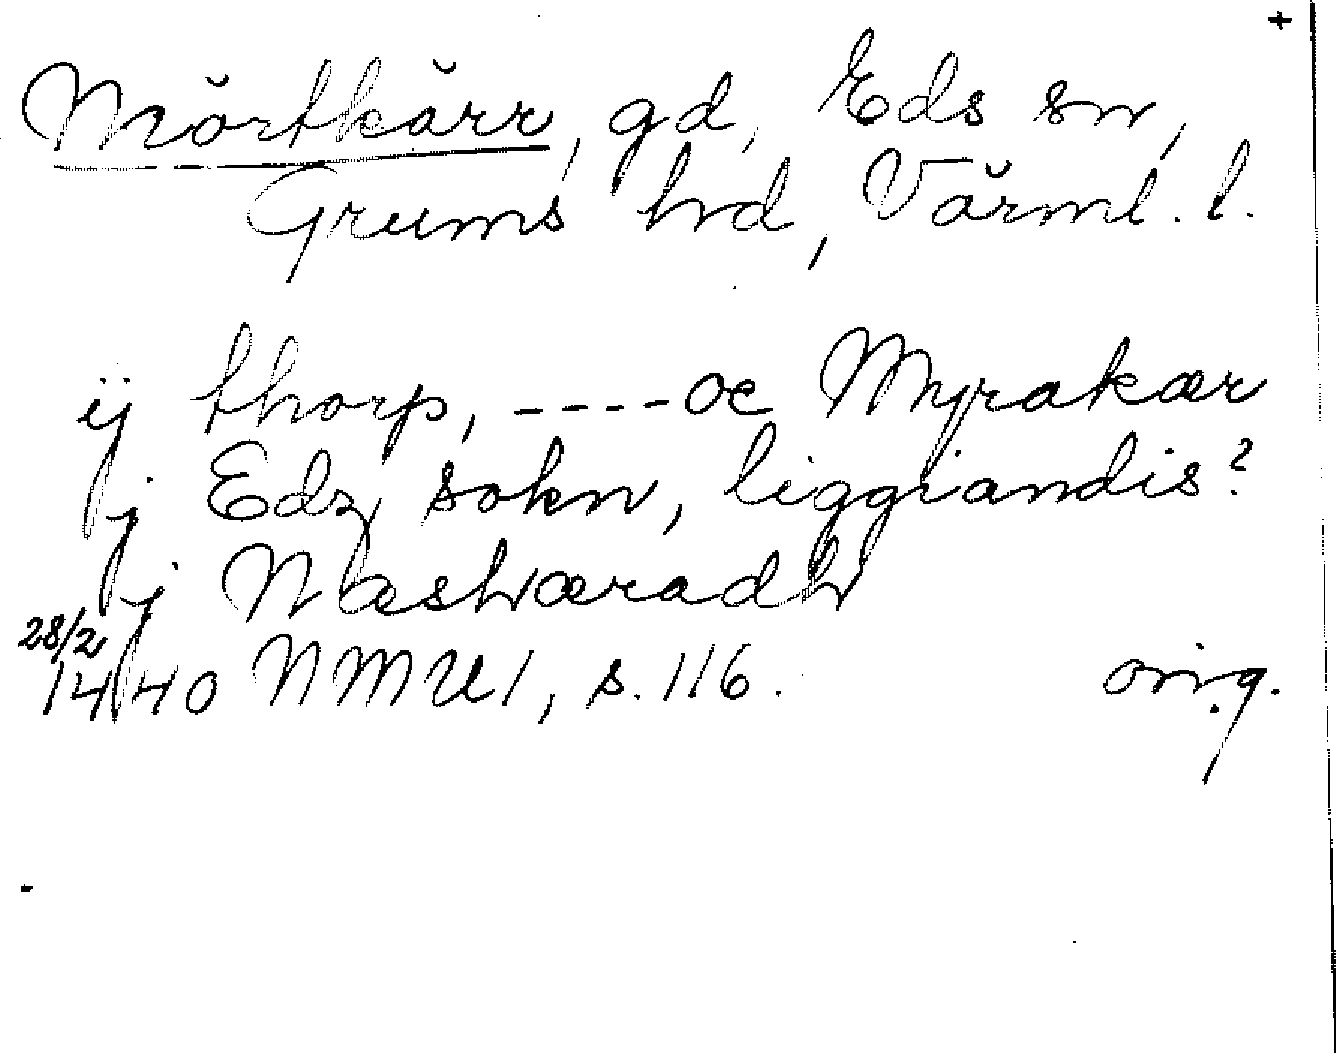 +
Mörtkärr, gd, Eds sn,
Grums hd, Värml. l.
ij thorp, ----oc Myrakær
j Edz sokn, liggiandis?
j Næshæradh
28/2
1440 NMU1, s. 116. orig.